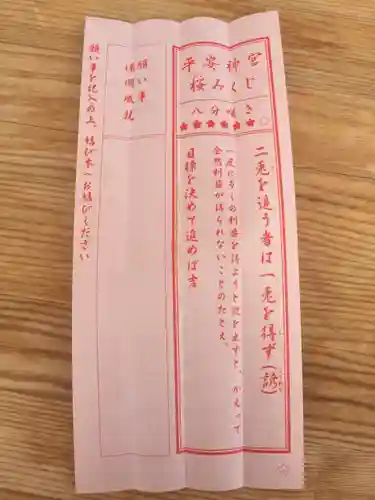 平安神宮
桜みくじ
八分咲き
二兎を追う者は一兎を得ず(諺)
一度に多くの利益を得ようと欲を出すと、かえって
全然利益が得られないことのたとえ。
目標を決めて進めば吉
願い事
情凋成就
願い事を記入の上、結び木へお結びください